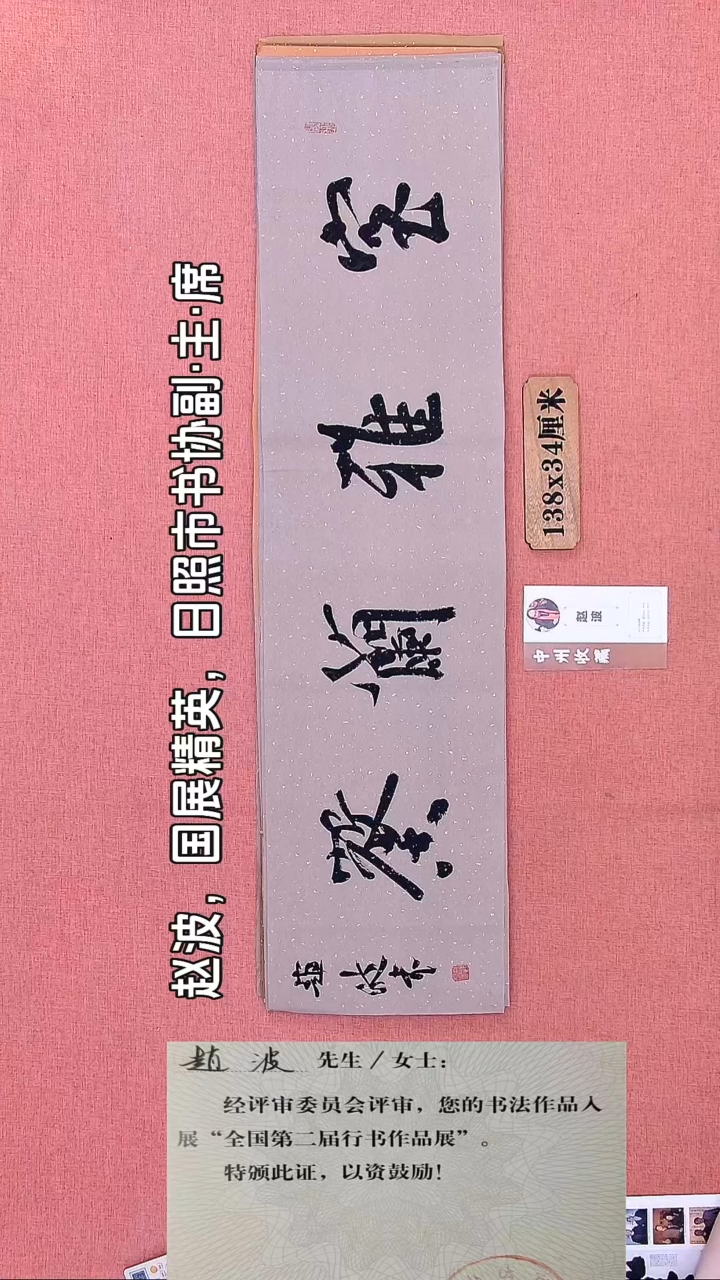 赵波，国展精英，日照市书协副·主·席
室雅蘭馨
趙波書
138x34厘米
赵波
中州收藏
趙波 先生／女士：
经评审委员会评审，您的书法作品入
展“全国第二届行书作品展”。
特颁此证，以资鼓励！